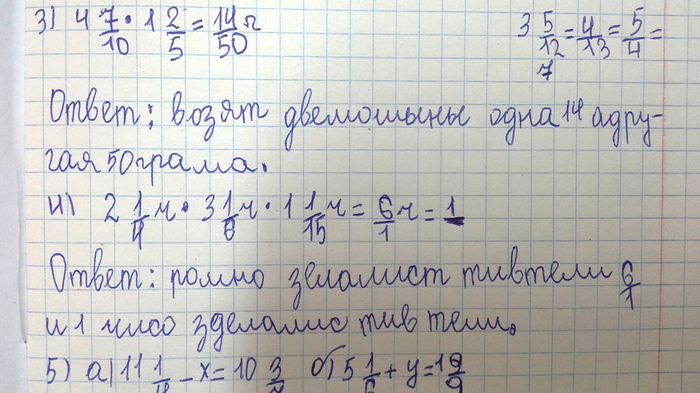 3) 4 7/10 · 1 2/5 = 14/50 г 3 5/12 = 4/13 = 5/4 =
7
Ответ: возят двемошыны одна 14 адру-
гая 50 грама.
4) 2 1/4 ч · 3 1/6 ч · 1 1/15 ч = 6/1 ч = 1
Ответ: ромно зеламист тивтели 6/1
и 1 чисо зделалис тив тели.
5) а) 11 1/ - х = 10 3/ б) 5 1/6 + у = 19/9